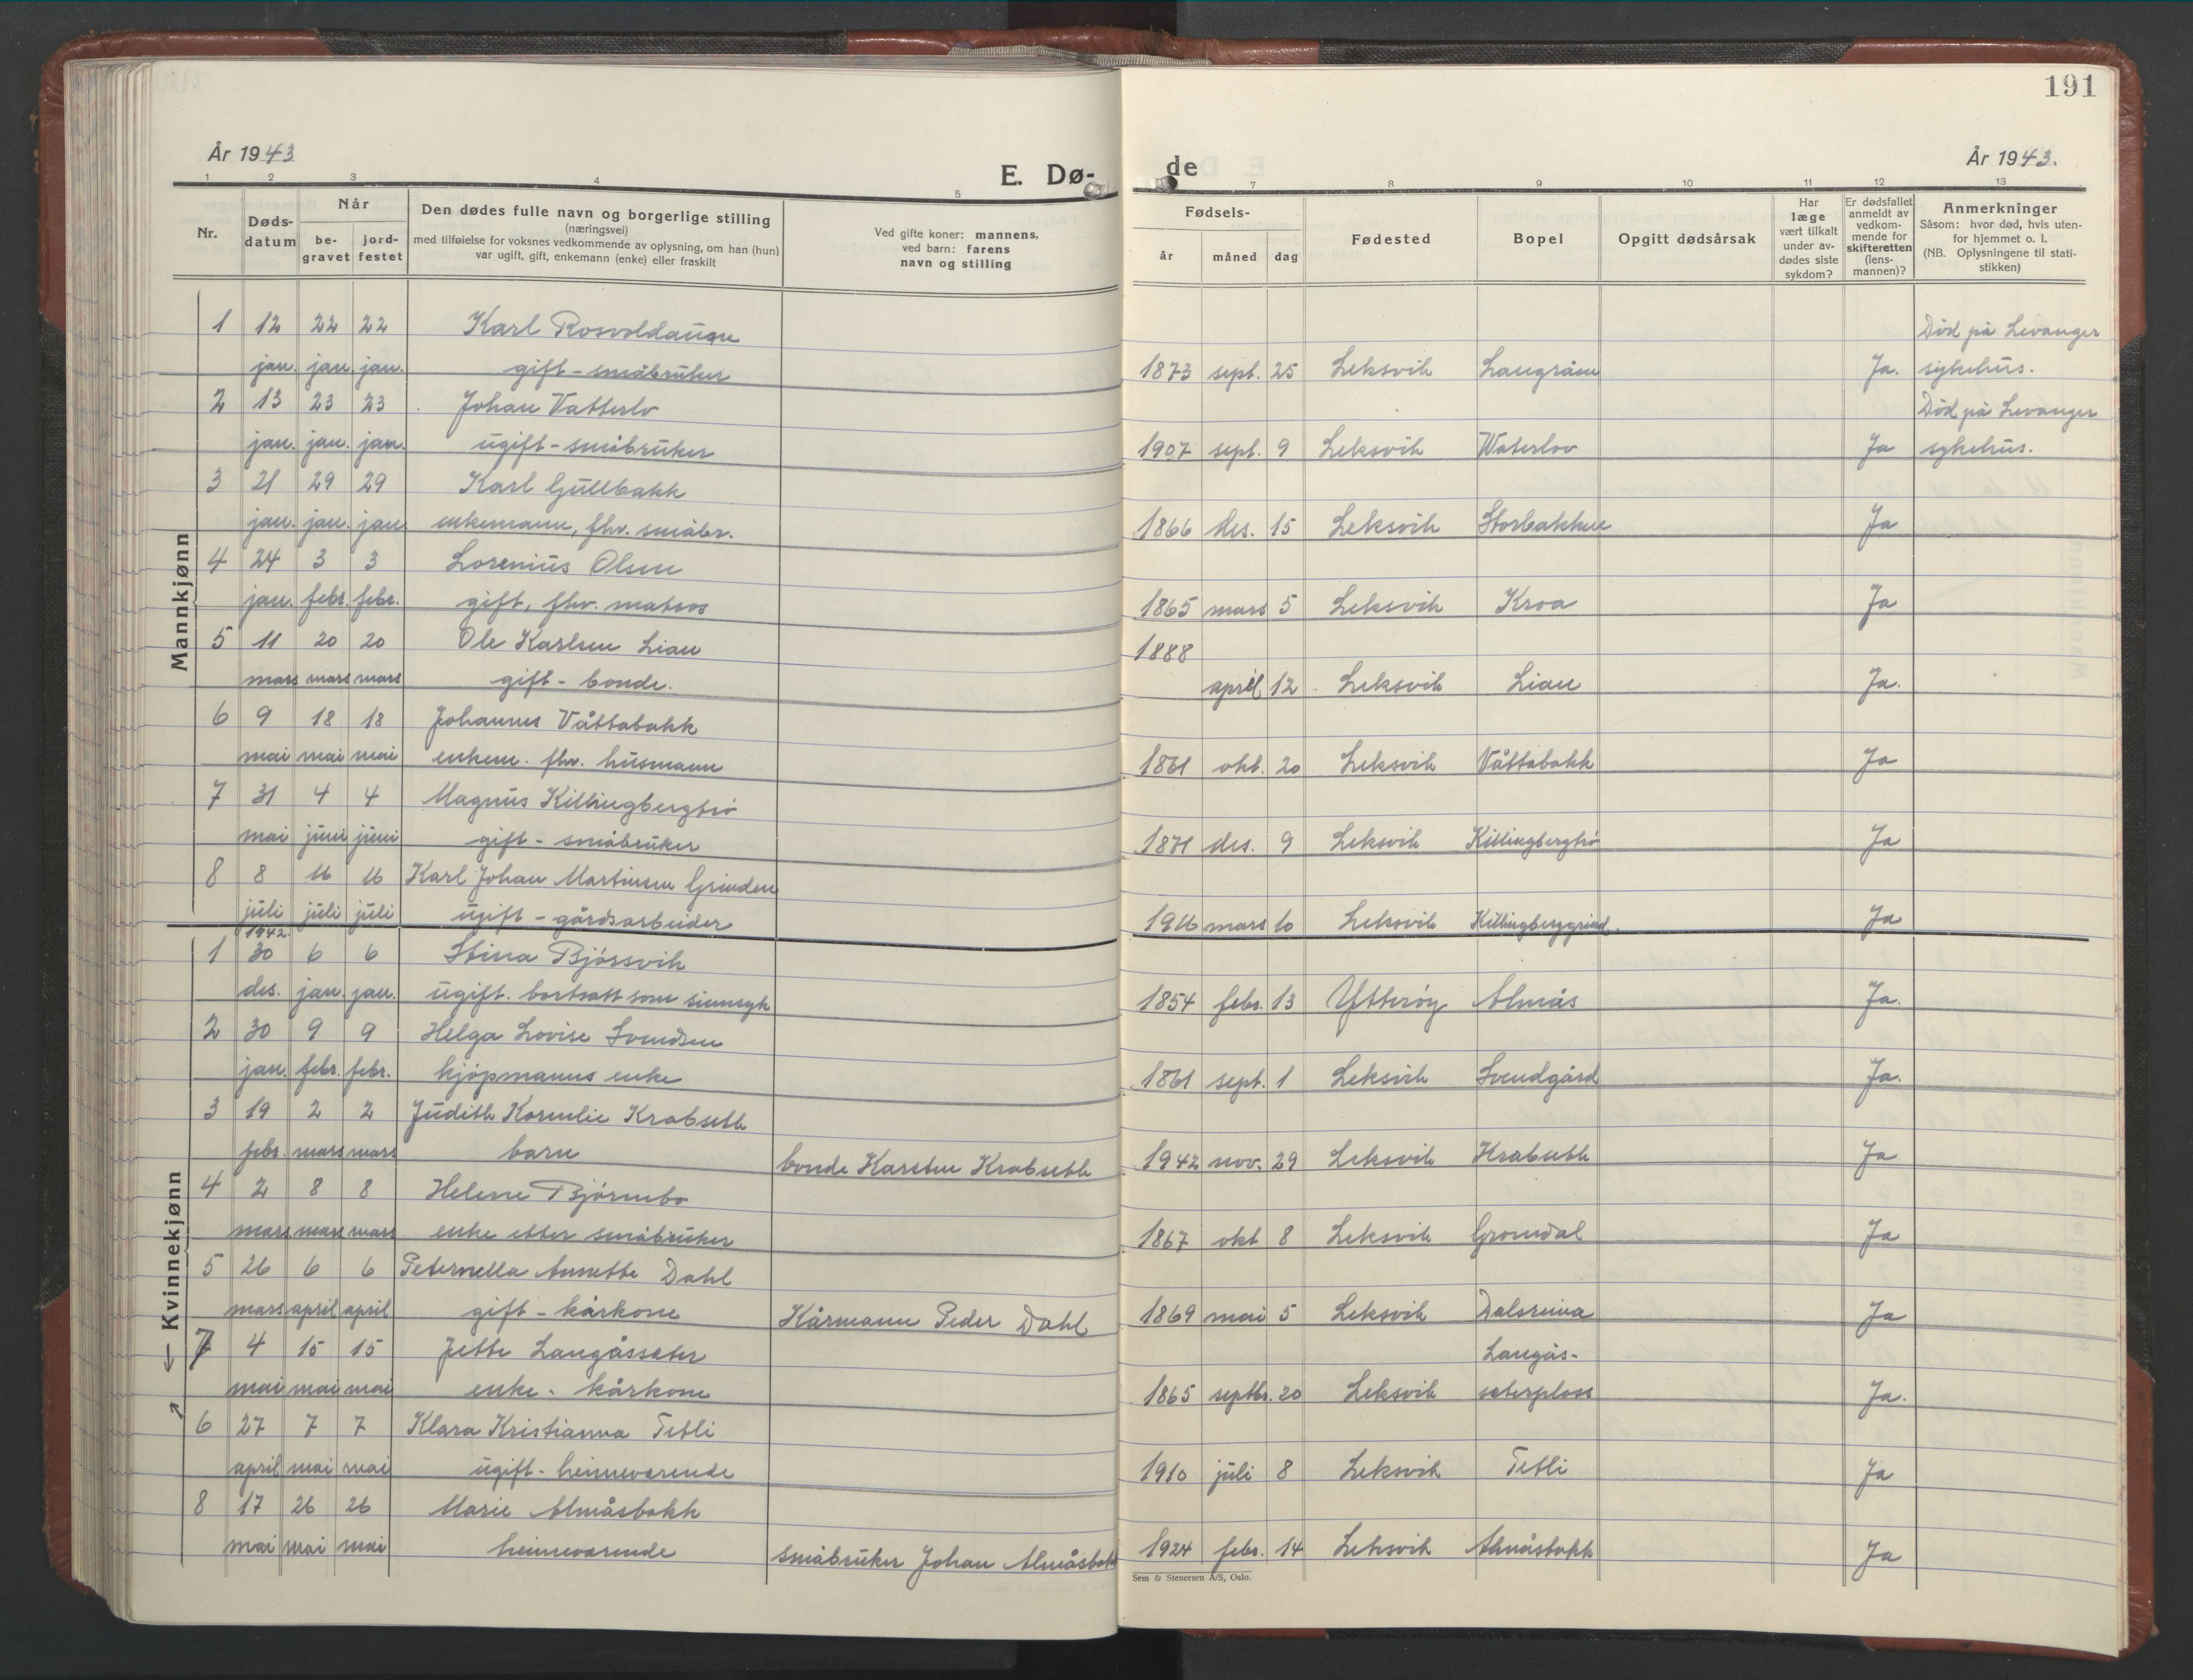 191
År 1943
E. Dø-
de
År 1943.
1 2 3 4 5 7 8 9 10 11 12 13
Nr.
Døds-
datum
Når
be-
gravet
jord-
festet
Den dødes fulle navn og borgerlige stilling
(næringsvei)
med tilføielse for voksnes vedkommende av oplysning, om han (hun)
var ugift, gift, enkemann (enke) eller fraskilt
Ved gifte koner: mannens,
ved barn: farens
navn og stilling
Fødsels-
år måned dag
Fødested
Bopel
Opgitt dødsårsak
Har
læge
vært tilkalt
under av-
dødes siste
sykdom?
Er dødsfallet
anmeldt av
vedkom-
mende for
skifteretten
(lens-
mannen)?
Anmerkninger
Såsom: hvor død, hvis uten-
for hjemmet o. l.
(NB. Oplysningene til stati-
stikken)
Mannkjønn
1 12 22 22 Karl Rosvoldaune Død på Levanger
jan. jan. jan. gift - småbruker 1873 sept. 25 Leksvik Langråen Ja. sykehus.
2 13 23 23 Johan Vatterlo Død på Levanger
jan. jan. jan. ugift - småbruker 1907 sept. 9 Leksvik Waterlov Ja sykehus.
3 21 29 29 Karl Gullbakk
jan. jan. jan enkemann, fhv. småbr. 1866 des. 15 Leksvik Storbakken Ja
4 24 3 3 Lorenius Olsen
jan. febr. febr. gift, fhv. matros 1865 mars 5 Leksvik Kroa Ja
5 11 20 20 Ole Karlsen Lian 1888
mars mars mars gift - bonde. april 12 Leksvik Lian Ja.
6 9 18 18 Johannes Våttabakk
mai mai mai enkem. fhv. husmann 1861 okt. 20 Leksvik Våttabakk Ja
7 31 4 4 Magnus Killingbergtrø
mai juni juni gift - småbruker 1871 des. 9 Leksvik Killingbergtrø Ja
8 8 16 16 Karl Johan Martinsen Grinden
juli juli juli ugift - gårdsarbeider 1916 mars 10 Leksvik Killingberggrind. Ja
Kvinnekjønn
1942.
1 30 6 6 Stina Bjørsvik
des. jan. jan. ugift. bortsatt som sinnsyk 1854 febr. 13 Ytterøy Almås Ja.
2 30 9 9 Helga Lovise Svendsen
jan. febr. febr. kjøpmanns enke 1861 sept. 1 Leksvik Svendgård Ja.
3 19 2 2 Judith Kornelie Krabseth
febr. mars mars barn bonde Karsten Krabseth 1942 nov. 29 Leksvik Krabseth Ja
4 2 8 8 Helene Bjørnbo
mars mars mars enke etter småbruker 1867 okt 8 Leksvik Grondal Ja
5 26 6 6 Peternella Annette Dahl
mars april april gift - kårkone Kårmann Peder Dahl 1869 mai 5 Leksvik Dalsreina Ja
7 4 15 15 Jette Langåssæter Langås-
mai mai mai enke - kårkone 1865 septbr. 20 Leksvik sæterplass Ja.
6 27 7 7 Klara Kristianna Tetli
april mai mai ugift - heimeværende 1910 juli 8 Leksvik Tetli Ja
8 17 26 26 Marie Almåsbakk
mai mai mai heimeværende småbruker Johan Almåsbakk 1924 febr. 14 Leksvik Almåsbakk Ja
Sem & Stenersen A/S, Oslo.